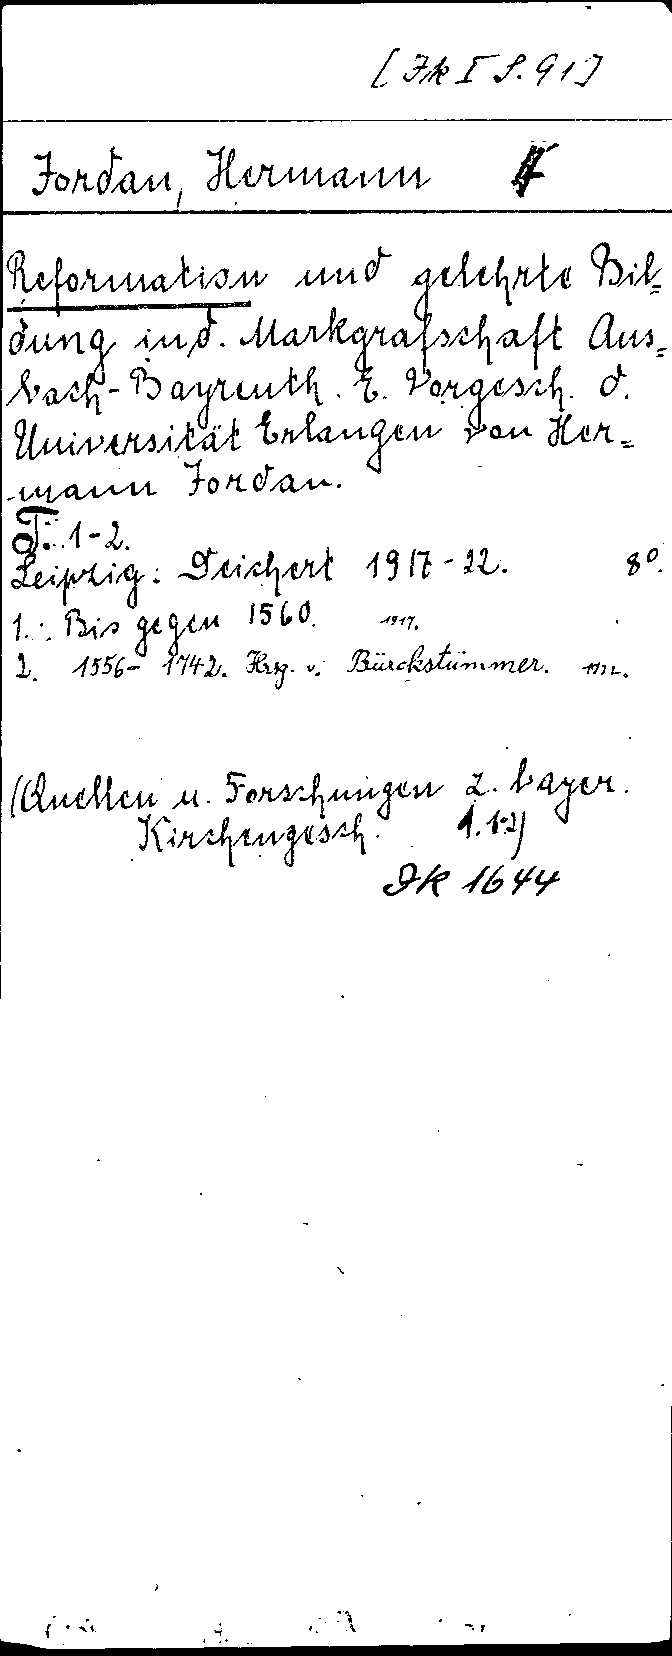 [Jk I S. 91]
Jordan, Hermann
Reformation und gelehrte Bil=
dung in d. Markgrafschaft Ans=
bach-Bayreuth. E. Vorgesch. d.
Universität Erlangen von Her=
mann Jordan.
T. 1-2.
Leipzig: Deichert 1917-22. 8°.
1.: Bis gegen 1560. 1917.
2. 1556-1742. Hrsg. v. Bürckstümmer. 1922.
(Quellen u. Forschungen z. bayer.
Kirchengesch. 1.1-2)
Jk 1644